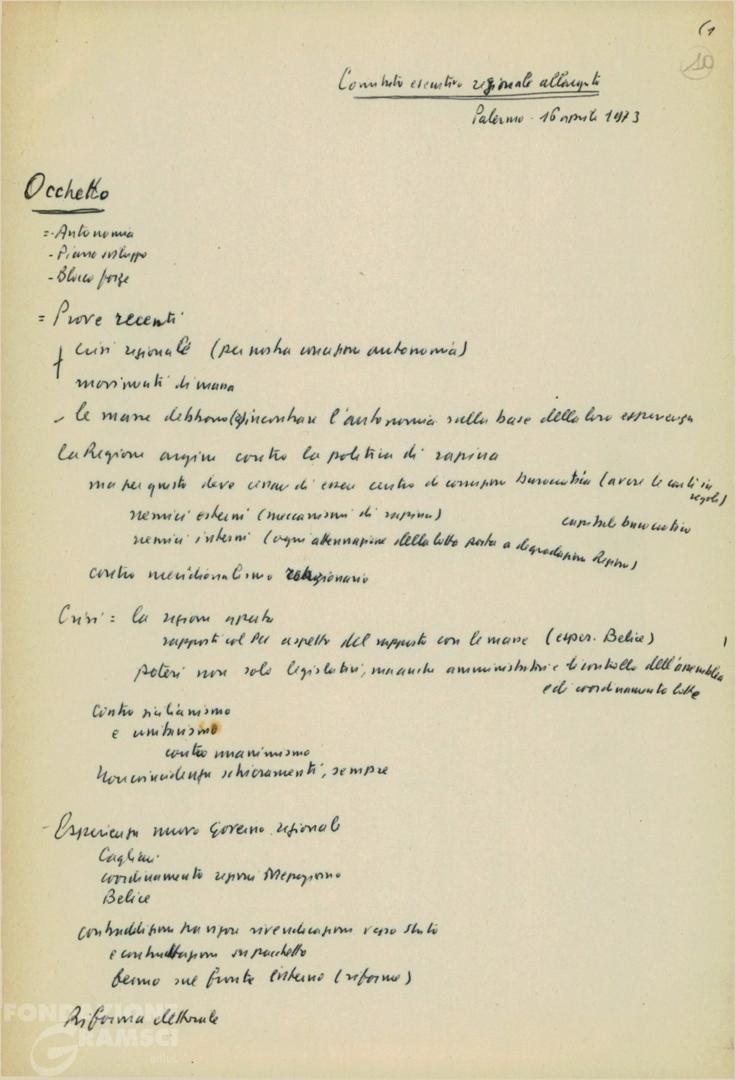 (1
10
Comitato esecutivo regionale allargato
Palermo - 16 aprile 1973
Occhetto
=- Autonomia
- Piano sviluppo
- Blocco forze
= Prove recenti
crisi regionale (per nostra concezione autonomia)
movimenti di massa
- le masse debbono (re)incontrare l'autonomia sulla base della loro esperienza
la Regione argine contro la politica di rapina
ma per questo deve cessare di essere centro di corruzione burocratica (avere le carti in regola)
nemici esterni (meccanismi di rapina)
capitale burocratico
nemici interni (ogni attenuazione della lotta porta a degradazione
contro meridionalismo
Crisi = la regione aperta
rapporti col PCI aspetto del rapporto con le masse (esper. Belice)
poteri non solo legislativi, ma anche amministrativi e di controllo dell'assemblea
e di coordinamento lotte
Contro sicilianismo
e unitarismo
contro unanimismo
Non coincidenza schieramenti, sempre
- Esperienza nuovo governo regionale
Cagliari
coordinamento regioni Mezzogiorno
Belice
contraddizioni tra vigore rivendicazioni verso stato
e contrattazioni su pacchetto
fermo sul fronte interno (riforme)
Riforma elettorale
FONDAZIONE
GRAMSCI
onlus